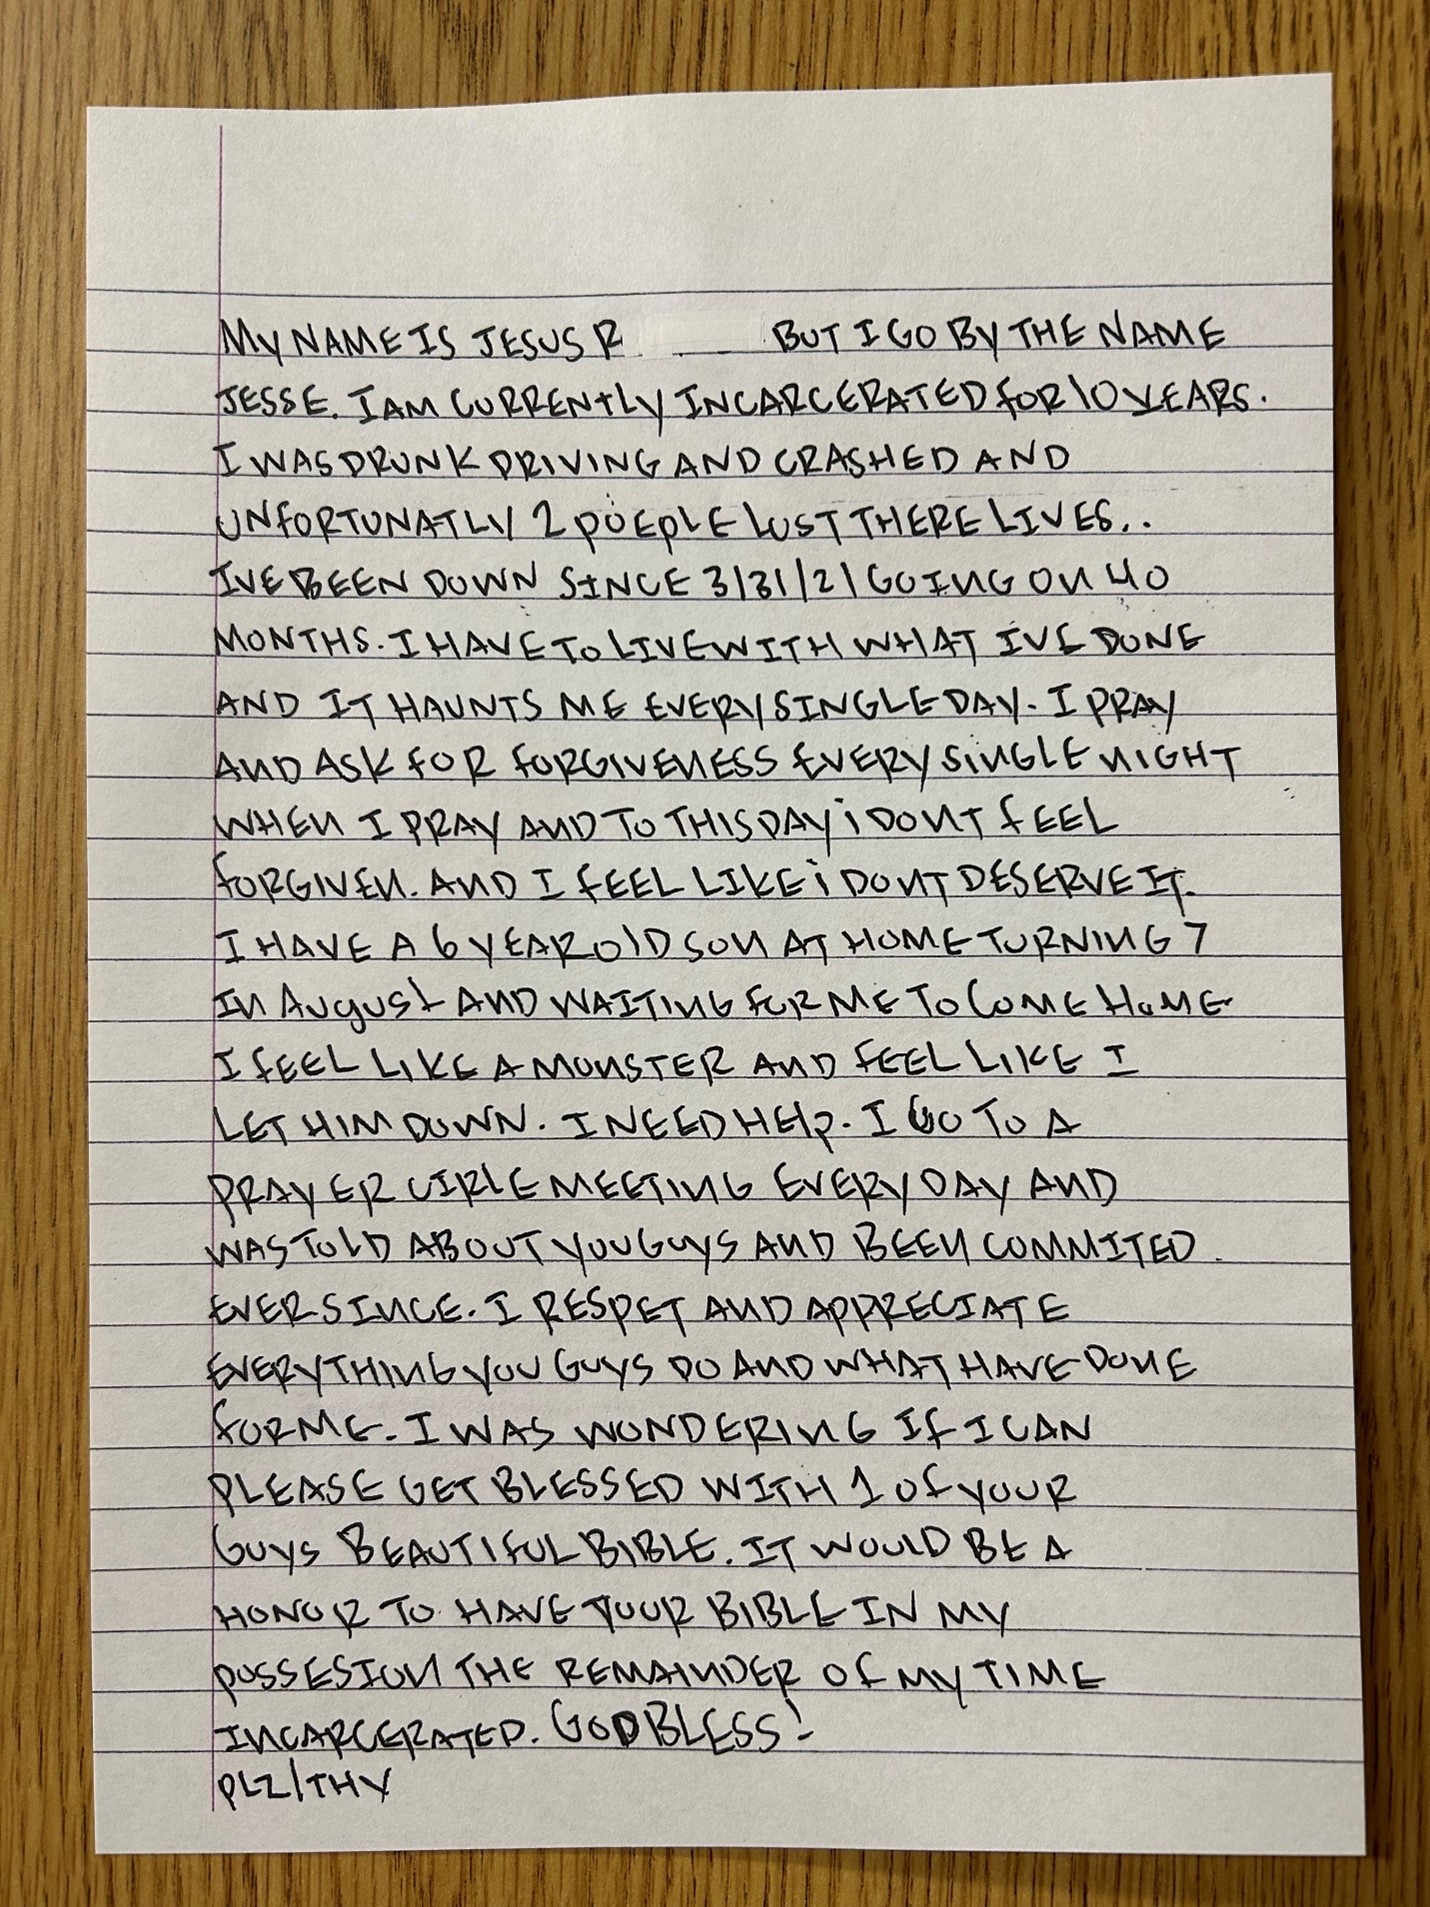 MY NAME IS JESUS R BUT I GO BY THE NAME
JESSE. I AM CURRENTLY INCARCERATED FOR 10 YEARS.
I WAS DRUNK DRIVING AND CRASHED AND
UNFORTUNATLY 2 POEPLE LOST THERE LIVES..
IVE BEEN DOWN SINCE 3/31/21 GOING ON 40
MONTHS. I HAVE TO LIVE WITH WHAT IVE DONE
AND IT HAUNTS ME EVERY SINGLE DAY. I PRAY
AND ASK FOR FORGIVENESS EVERY SINGLE NIGHT
WHEN I PRAY AND TO THIS DAY i DONT FEEL
FORGIVEN. AND I FEEL LIKE i DONT DESERVE IT.
I HAVE A 6 YEAR OlD SON AT HOME TURNING 7
IN AUgUSt AND WAITING FOR ME TO COME HOME.
I FEEL LIKE A MONSTER AND FEEL LIKE I
LET HIM DOWN. I NEED HElp. I GO TO A
PRAYER CIRlE MEETING EVERYDAY AND
WAS TOlD ABOUT YOU GUYS AND BEEN COMMITED
EVER SINCE. I RESPET AND APPRECIATE
EVERYTHING YOU GUYS DO AND WHAT HAVE DONE
FOR ME. I WAS WONDERING IF I CAN
PLEASE GET BLESSED WITH 1 OF YOUR
GUYS BEAUTIFUL BIBLE. IT WOULD BE A
HONOR TO HAVE YOUR BIBLE IN MY
POSSESION THE REMAINDER OF MY TIME
INCARCERATED. GOD BLESS!
PLZ/THY